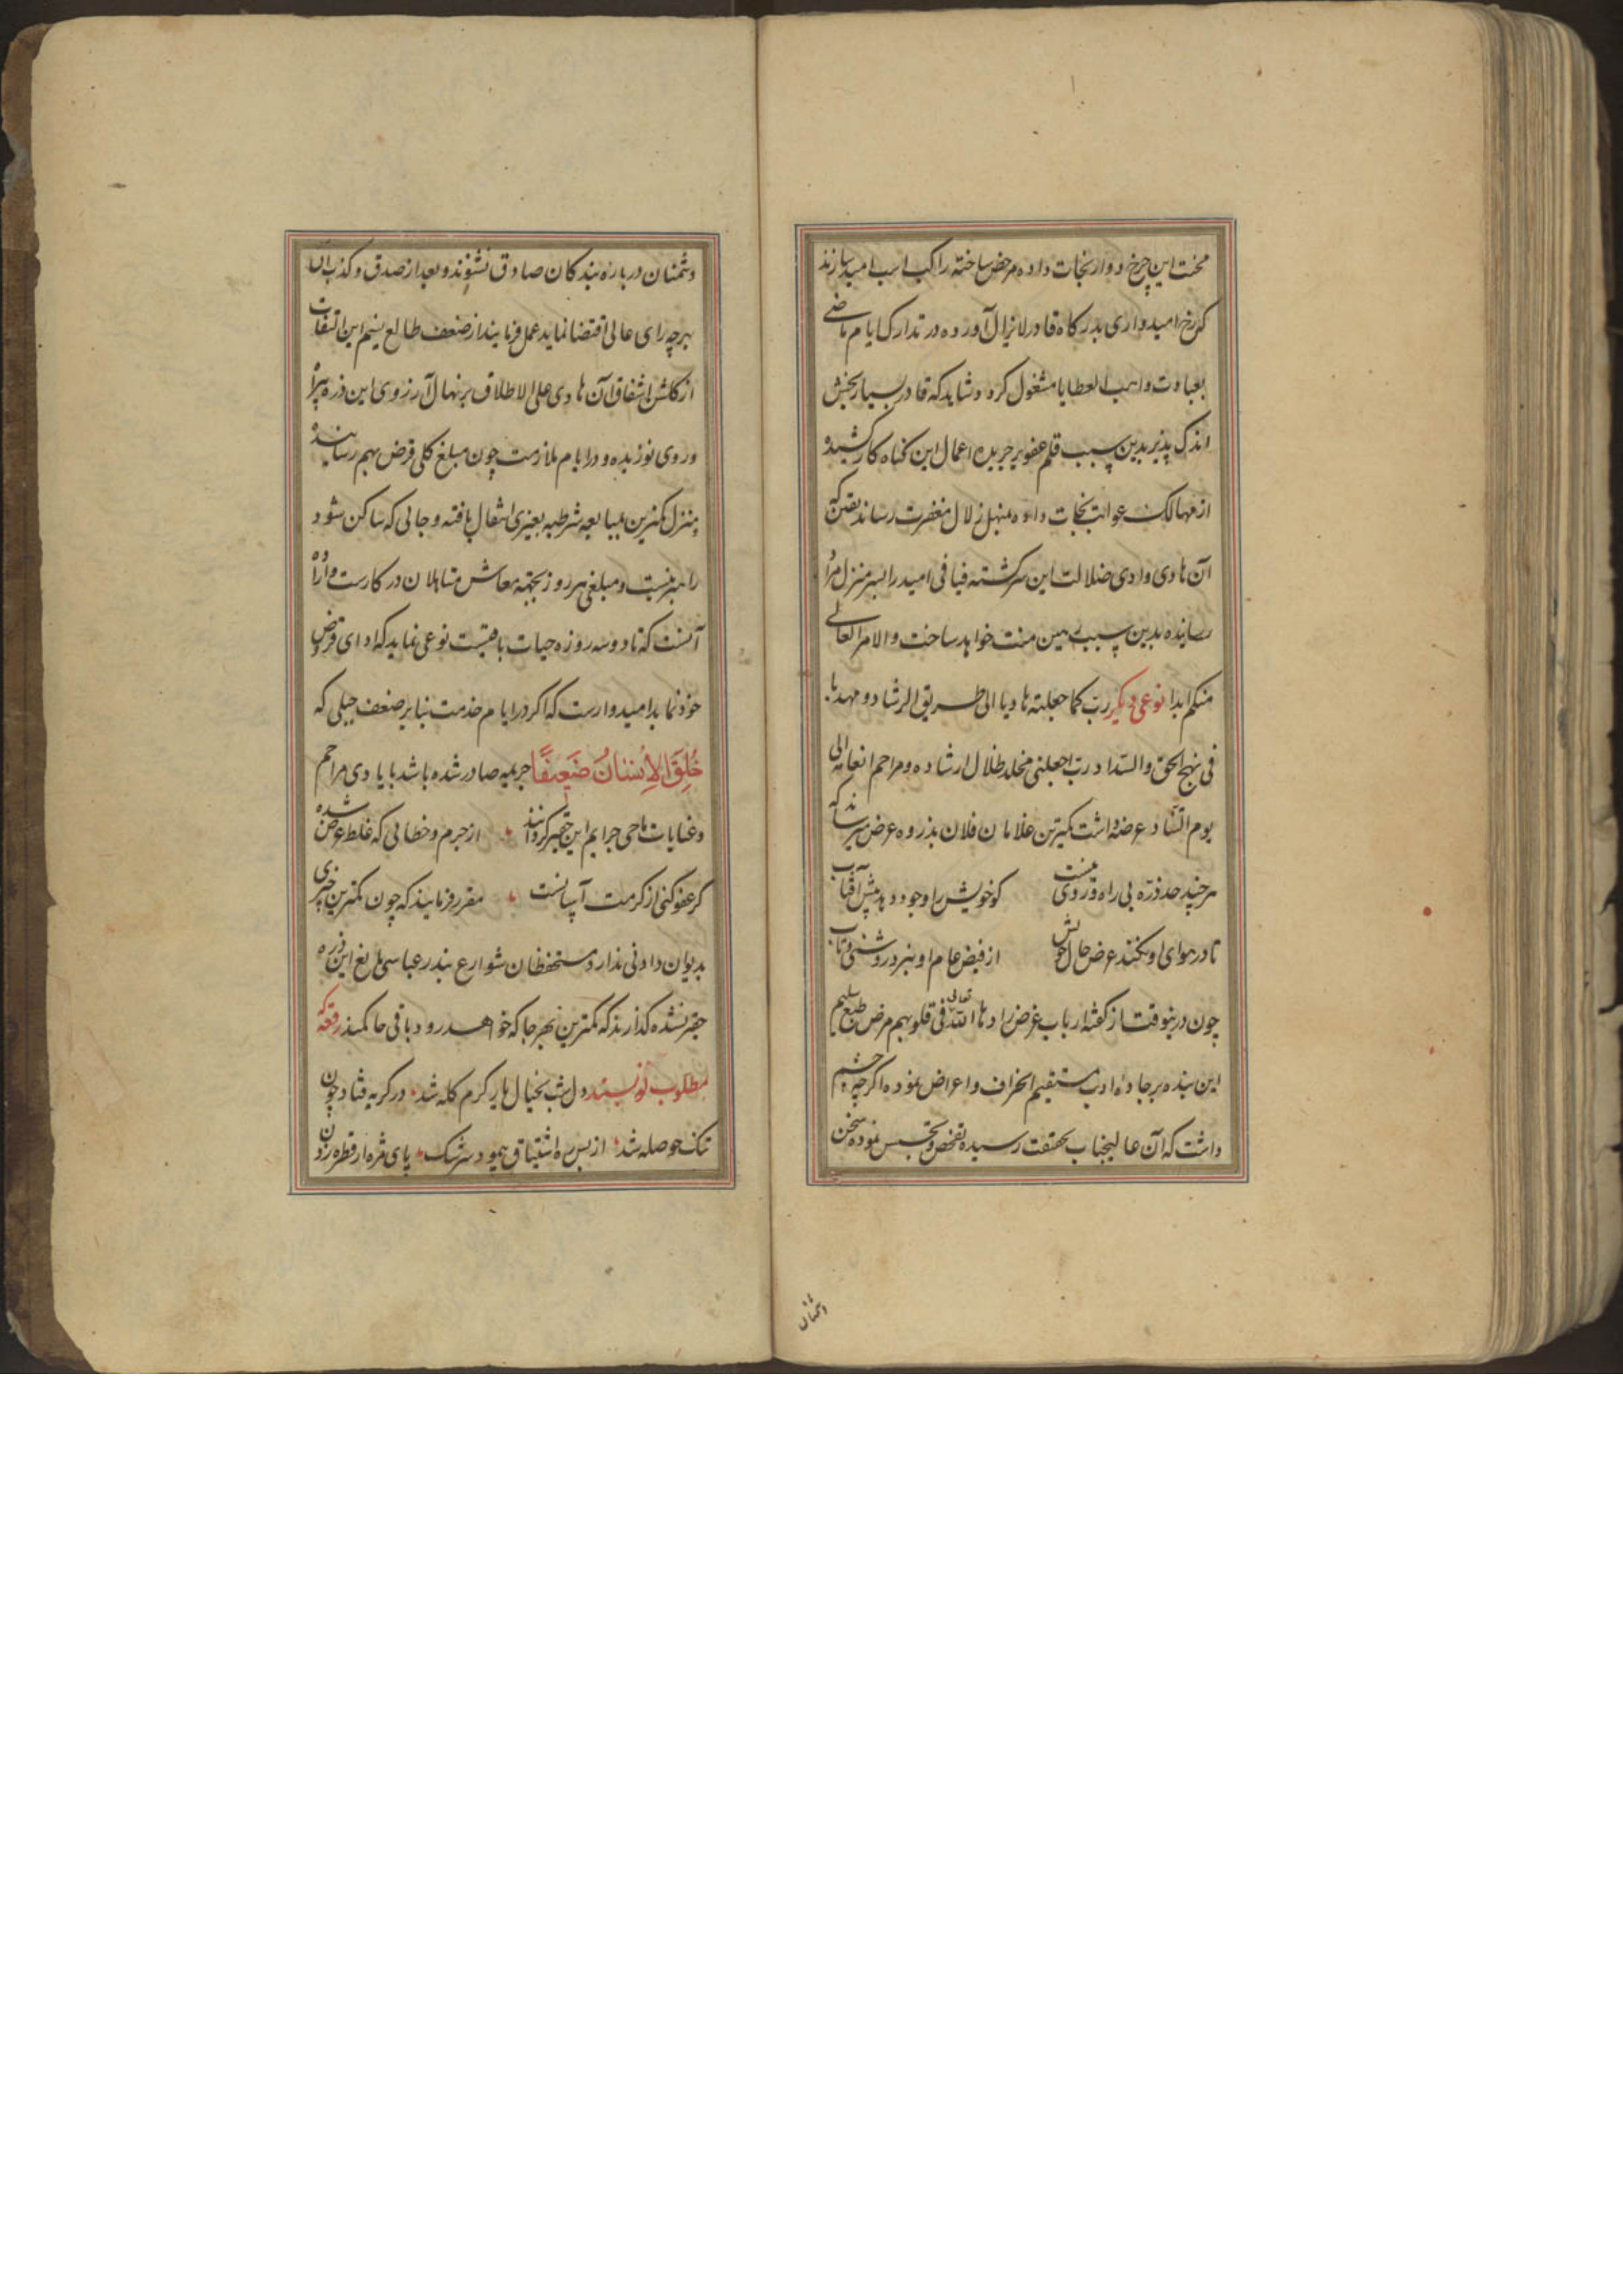 محنت این چرخ دوار نجات داده مرخص ساخته راکب اسب امید سازند
که رخ امیدواری بدرکاه قادر لایزال آورده در تدارک ایام ماضی
بعبادت واهب العطایا مشغول کردد شاید که قادر بسیار بخش
اندک پذیر بدین سبب قلم عفو بر جریده اعمال این کناه کار کشیده
از مهالک عواقب نجات داده بمنهل زلال مغفرت رساند یقین که
آن هادی وادی ضلالت این سرکشته فیافی امید را بسر منزل مراد
رسانیده بدین سبب رهین منت خواهد ساخت والامر العالی
منکم ابدا نوعی دیکر رب کما جعلته هادیا الی طریق الرشاد و مهدیا
فی نهج الحق والسداد رب اجعلنی مخلد ظلال ارشاده ومراحم انعامه الی
یوم التناد عرضه داشت کمترین غلامان فلان بذروه عرض میرساند که
هرچند حد ذره بی راه و روی نیست کو خویش را وجود دهد پیش آفتاب
تا در هوای او نکند عرض حال خویش از فیض عام او نبرد روشنی و تاب
چون درینوقت از کفتار ارباب غرض زادها الله تعالی فی قلوبهم مرض طبع سلیم
این بنده بر جادهٔ ادب مستقیم انحراف و اعراض نموده اکرچه چشم
داشت که آن عالیجناب بحقیقت رسیده تفحص و تجسس نموده سخن
دشمنان
دشمنان درباره بندکان صادق نشنوند و بعد از صدق و کذب آن
بهرچه رای عالی اقتضا نماید عمل فرمایند از ضعف طالع نسیم این التفات
از کلشن اشفاق آن هادی علی الاطلاق بر نهال آرزوی این ذره
وروی نوزیده و در ایام ملازمت چون مبلغ کلی قرض بهم رسانیده
منزل کمترین بمبایعه شرطیه بغیری انتقال یافته و جائی که ساکن شود
را بهم نیست و مبلغی هر روز بجهته معاش متاهلان در کارست و اراده
آنست که تا دو سه روزه حیات باقیست نوعی نماید که ادای قرض
خود نماید امیدوارست که اکر در ایام خدمت بنابر ضعف جبلی که
خُلِقَ الْإِنْسَانُ ضَعِيفًا جریمه صادر شده باشد بایادی مراحم
و عنایات ماحی جرایم این حقیر کردانند از جرم و خطائی که غلط عرض شده
کر عفو کنی از کرمت آسانست مقرر فرمایند که چون کمترین چیزی
بدیوان دادنی ندارد مستحفظان شوارع بندر عباسی مانع این ذره
حقیر نشده کذارند که کمترین بهر جا که خواهد رود باقی حاکمند رقعه که
مطلوب نویسند دل شب بخیال یار کرم کله شد در کریه فتاد چون
تنک حوصله شد از بس ره اشتیاق پیمود سرشک پای مژه از قطره زدن